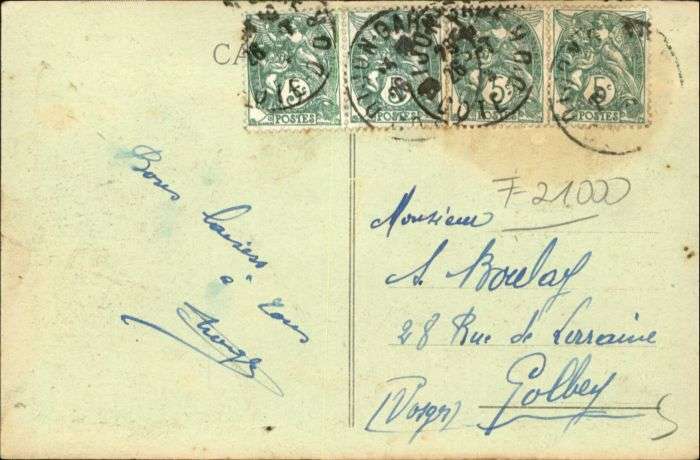 CA
5c
POSTES
5c
POSTES
5c
POSTES
5c
POSTES
DIJON GARE
COTE D'OR
F 21000
Bons baisers
à tous
Monsieur
A. Boulay
28 Rue de Lorraine
Golbey
(Vosges)